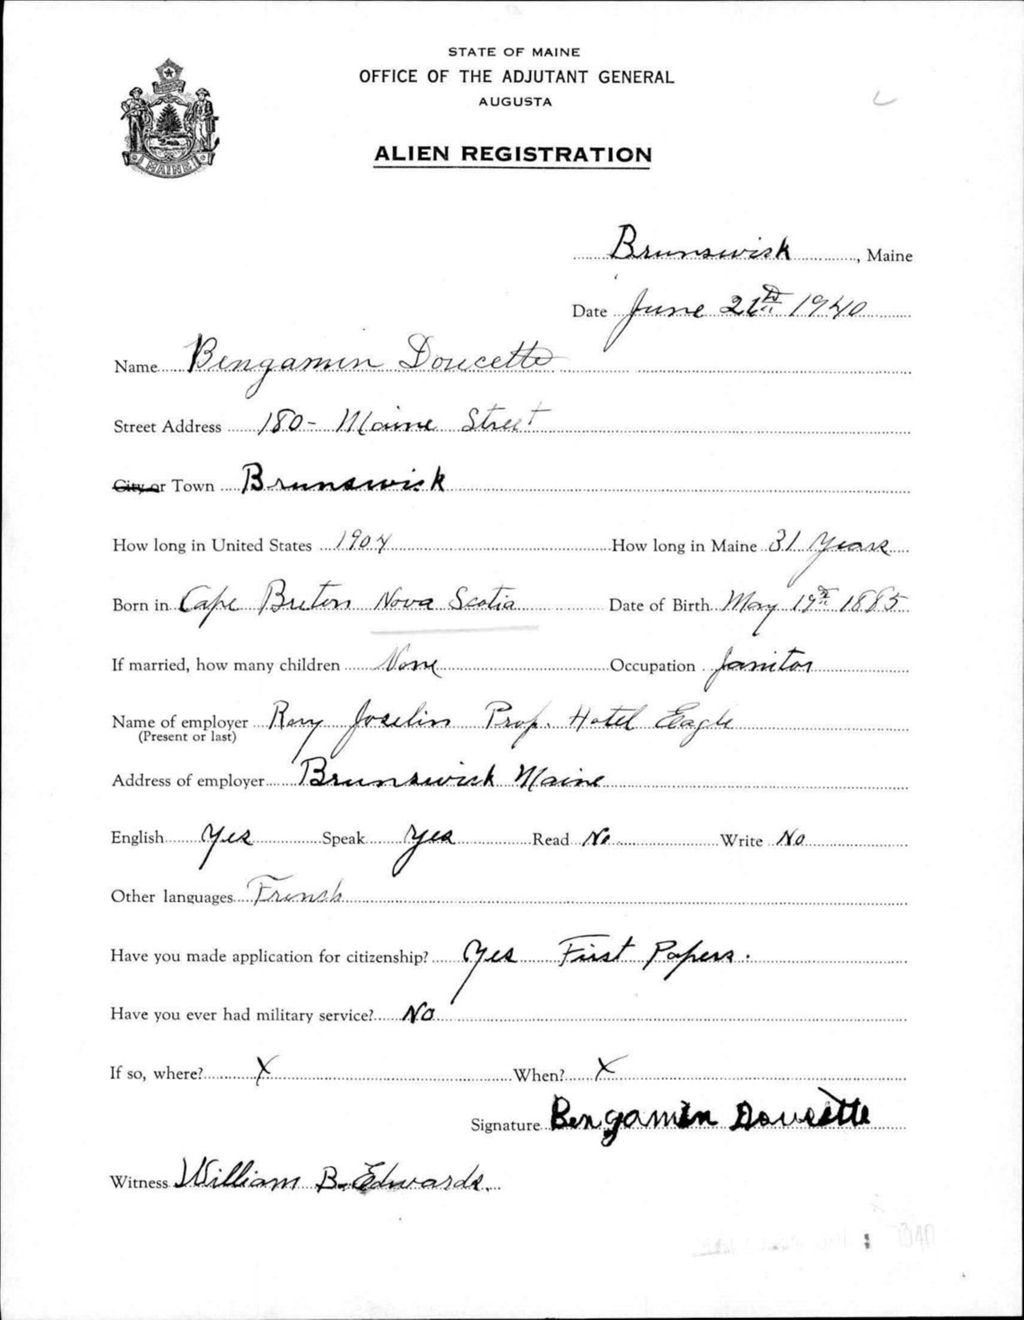 STATE OF MAINE
OFFICE OF THE ADJUTANT GENERAL
AUGUSTA
ALIEN REGISTRATION
MAINE
Brunswick, Maine
Date June 1940
Name Bengamin Doucette
Street Address 180 - Maine Street
City or Town Brunswick
How long in United States How long in Maine 31 Years
Born in Cape Breton Nova Scotia Date of Birth May 1885
If married, how many children None Occupation Janitor
Name of employer Ray Joselin Prop. Hotel Eagle
(Present or last)
Address of employer Brunswick Maine
English Yes Speak Yes Read No Write No
Other languages French
Have you made application for citizenship? Yes First Papers.
Have you ever had military service? No
If so, where? X When? X
Signature Bengamin Doucette
Witness William B. Edwards.